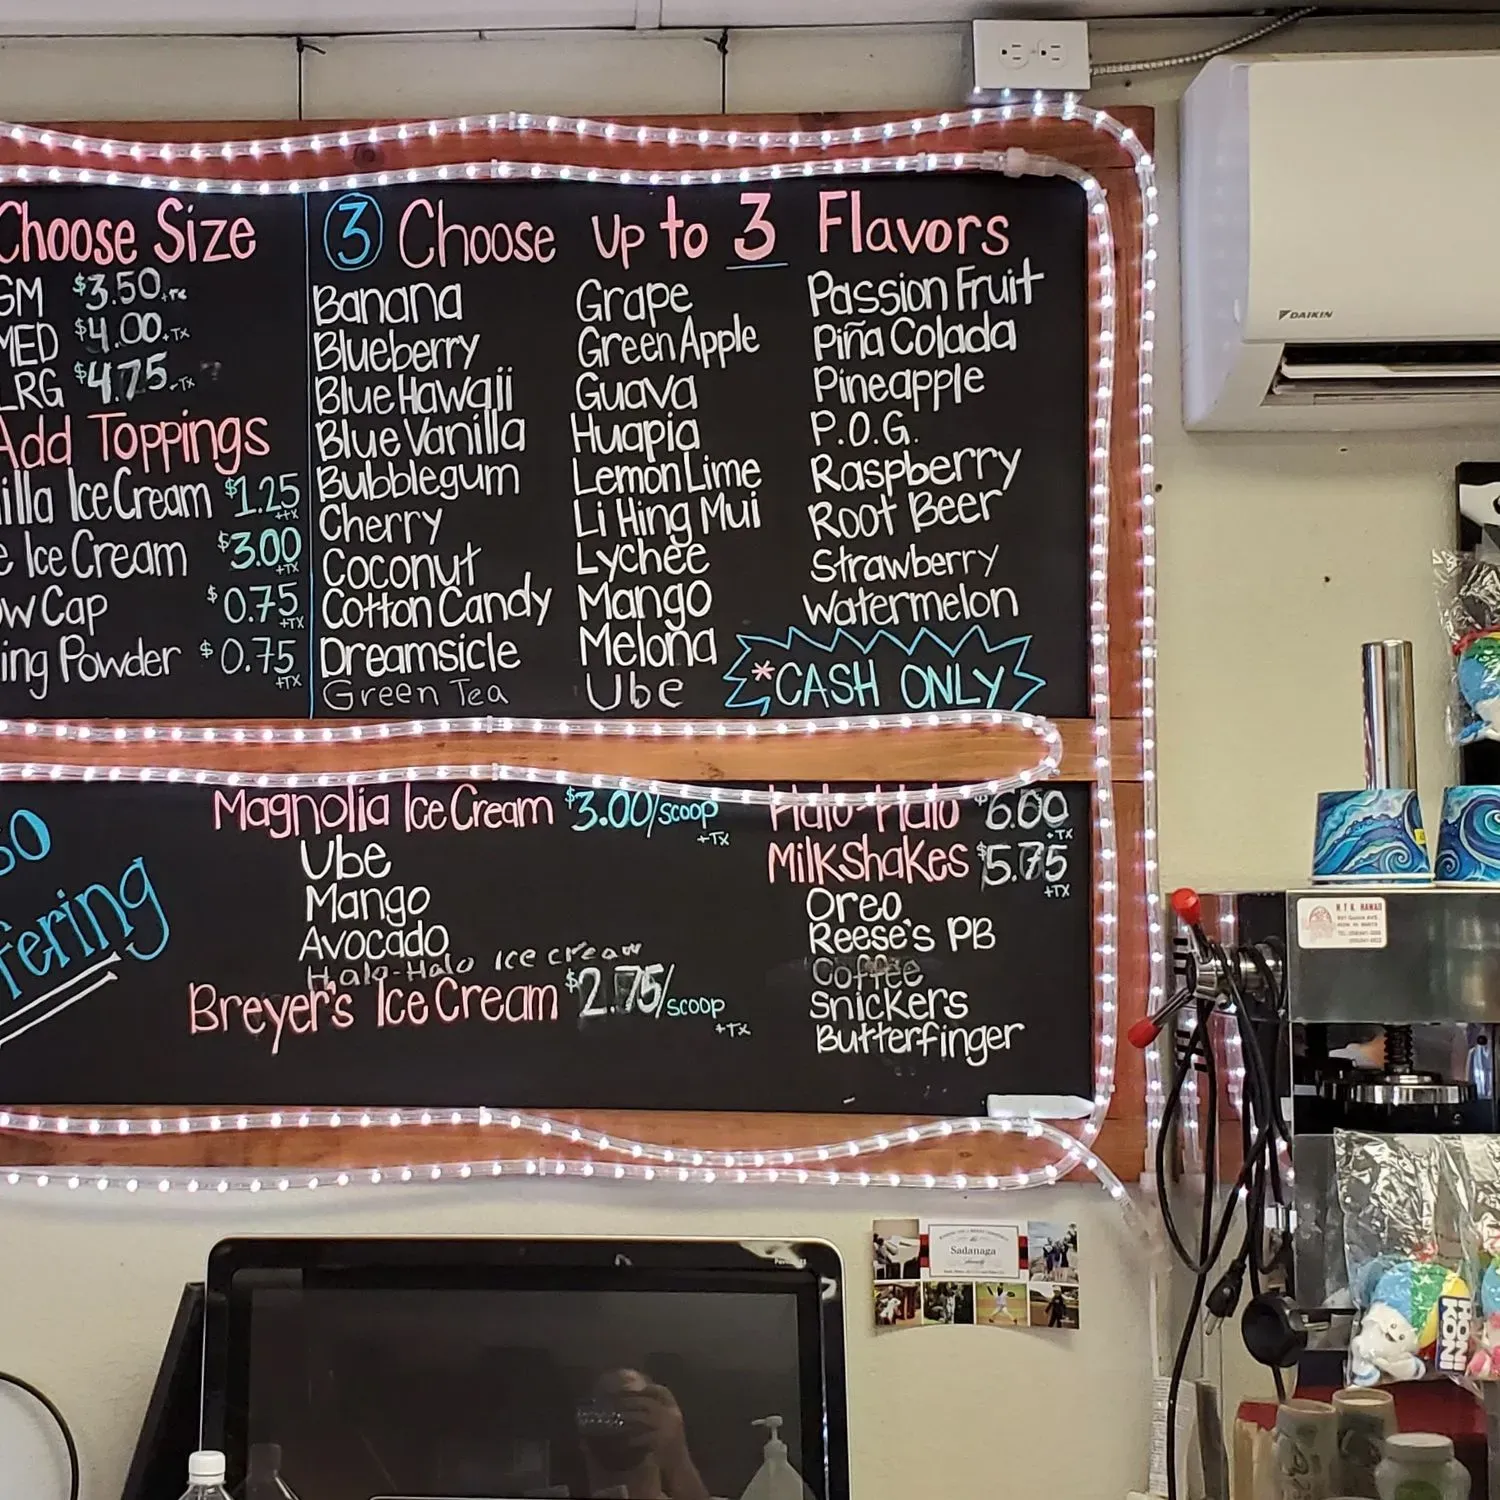 Choose Size
SM $3.50 +TX
MED $4.00 +TX
LRG $4.75 +TX
Add Toppings
Ice Cream $1.25 +TX
Ice Cream $3.00 +TX
Cap $0.75 +TX
Powder $0.75 +TX
3 Choose Up to 3 Flavors
Banana
Blueberry
Blue Hawaii
Blue Vanilla
Bubblegum
Cherry
Coconut
Cotton Candy
Dreamsicle
Green Tea
Grape
Green Apple
Guava
Huapia
Lemon Lime
Li Hing Mui
Lychee
Mango
Melona
Ube
Passion Fruit
Piña Colada
Pineapple
P.O.G.
Raspberry
Root Beer
Strawberry
Watermelon
*CASH ONLY
Magnolia Ice Cream $3.00/scoop +TX
Ube
Mango
Avocado
Halo-Halo Ice cream
Breyer's Ice Cream $2.75/scoop +TX
Halo-Halo $6.00 +TX
Milkshakes $5.75 +TX
Oreo
Reese's PB
Coffee
Snickers
Butterfinger
DAIKIN
Sadanaga
HONI
KONI